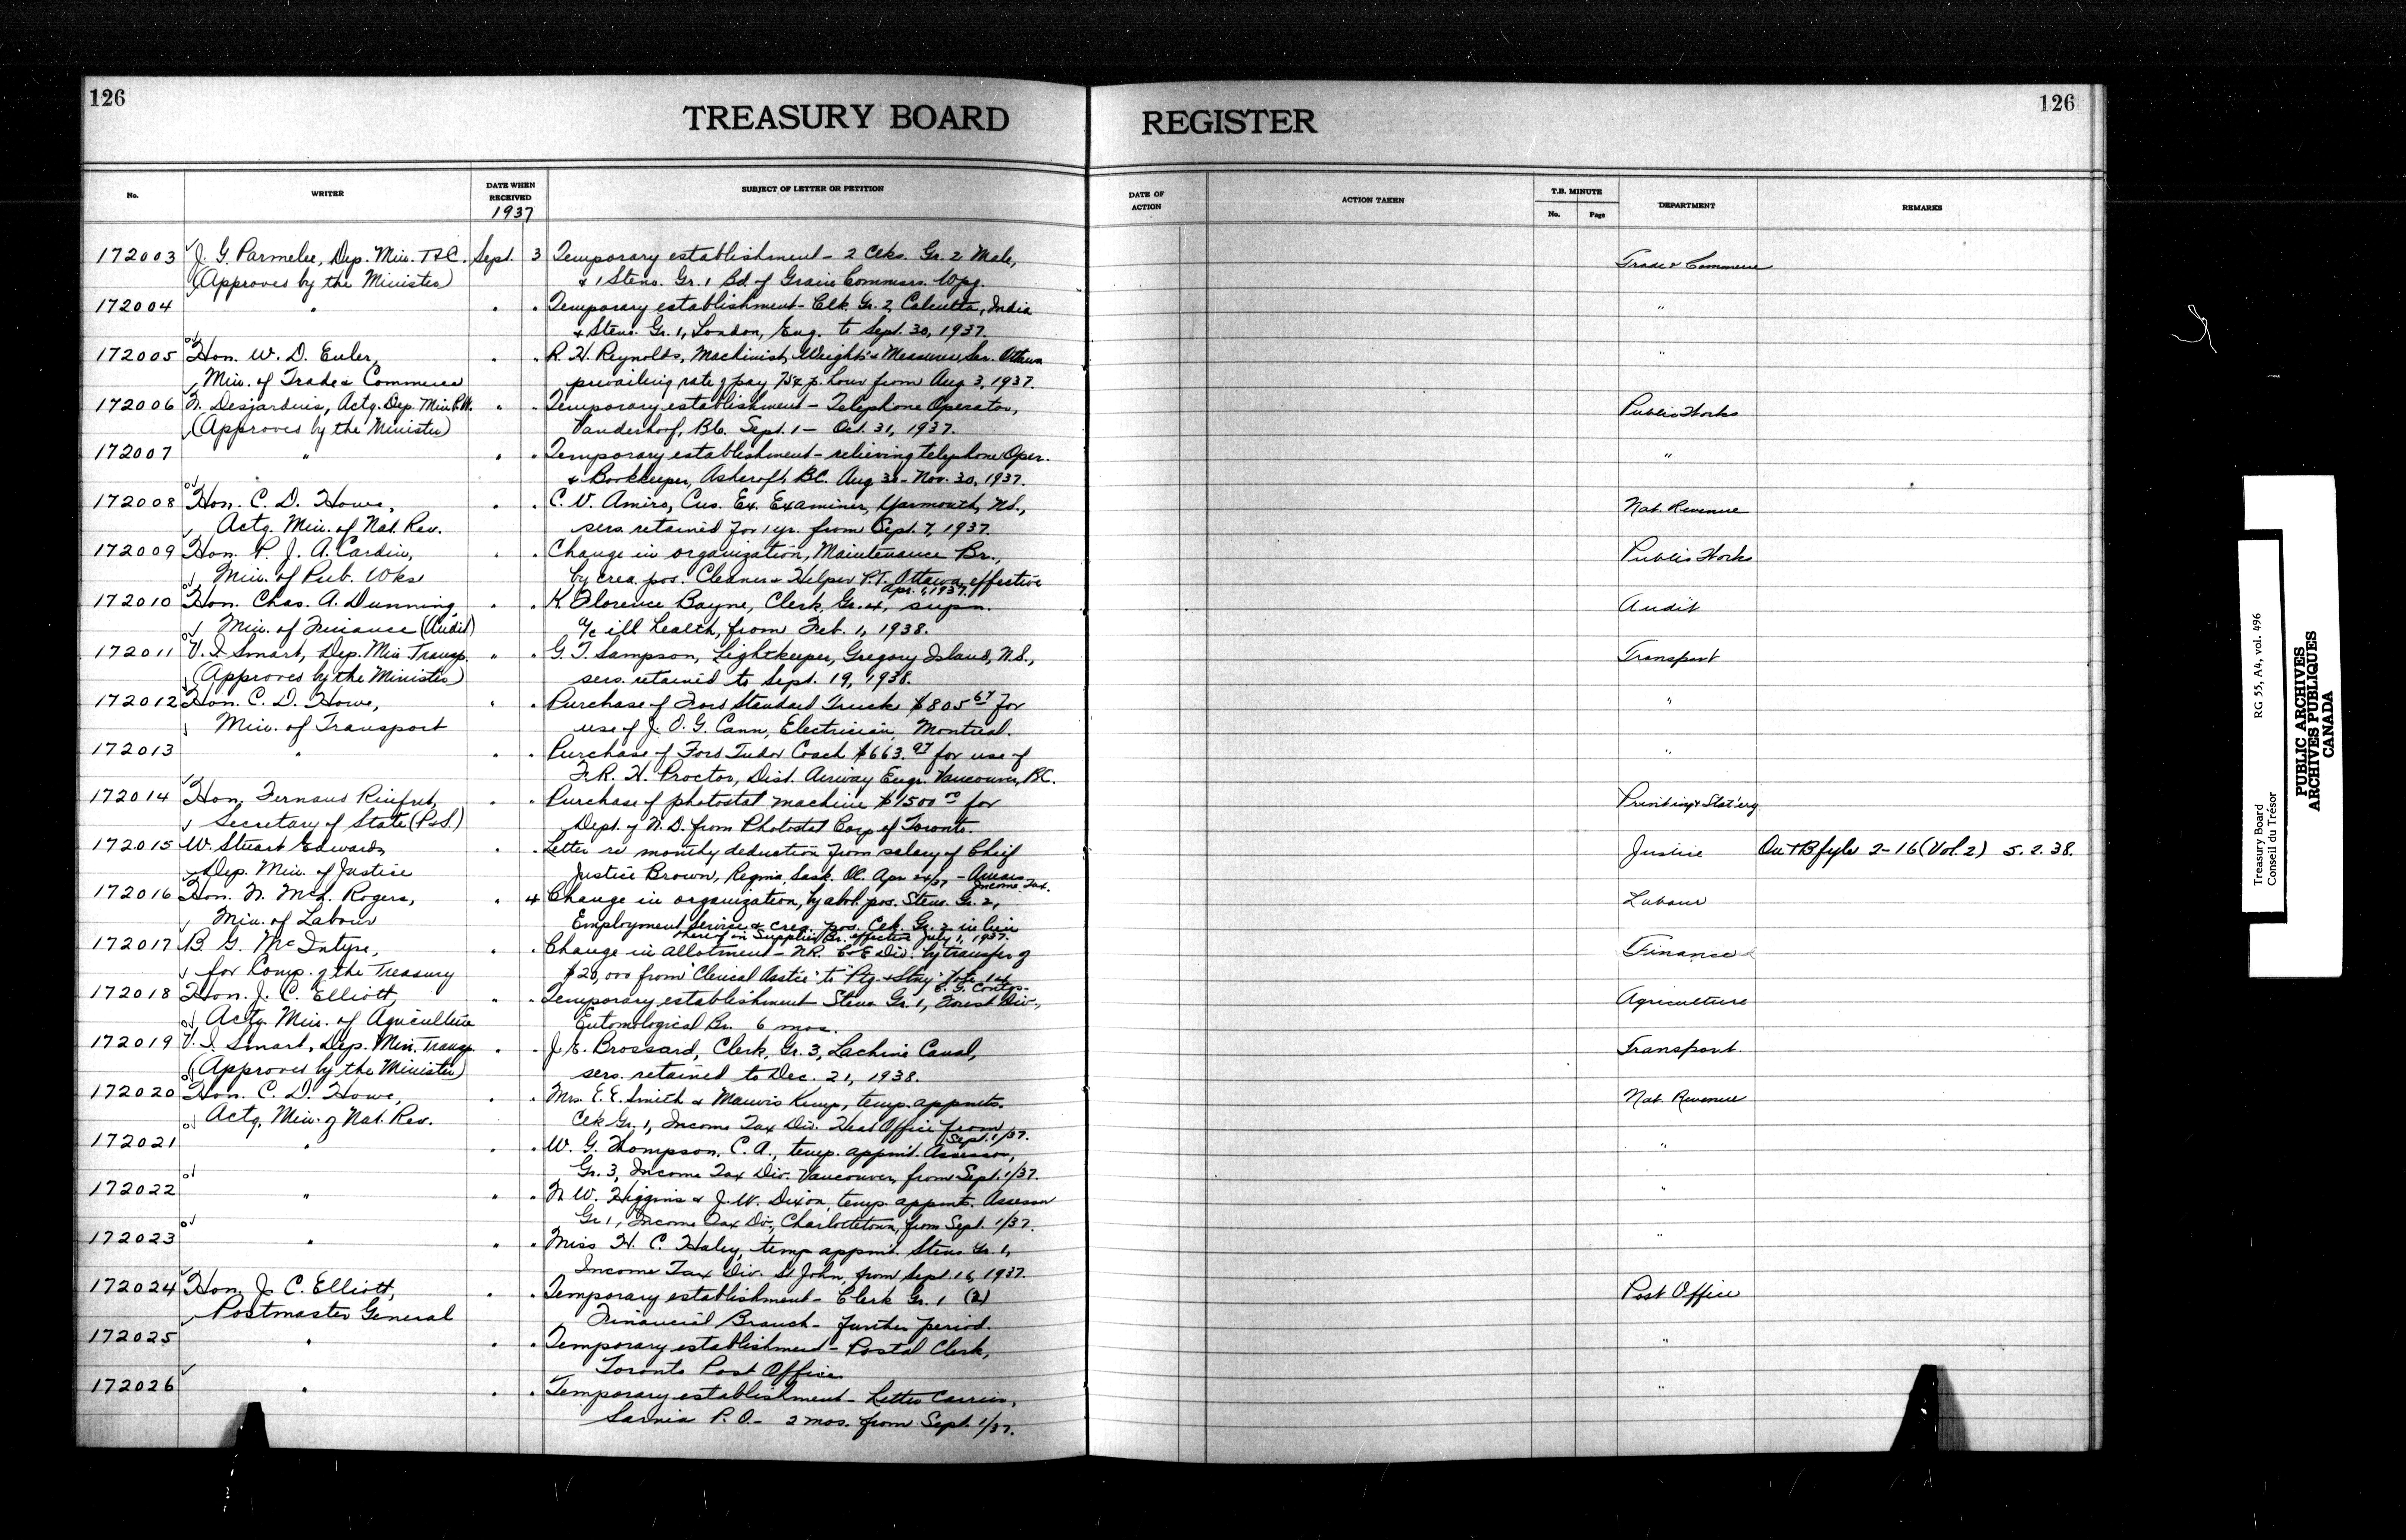 126
126
TREASURY BOARD REGISTER
No.
WRITER
DATE WHEN RECEIVED
1937
SUBJECT OF LETTER OR PETITION
DATE OF ACTION
ACTION TAKEN
T.B. MINUTE
No.
Page
DEPARTMENT
REMARKS
172003 J. G. Parmelee, Dep. Min. T&C. Sept. 3 Temporary establishment - 2 Clks. Gr. 2 Male, Trade & Commerce
(Approves by the Minister) & 1 Steno. Gr. 1 Bd. of Grain Commrs. Wpg.
172004 " " " Temporary establishment - Clk. Gr. 2, Calcutta, India "
& Steno. Gr. 1, London, Eng. to Sept. 30, 1937.
172005 Hon. W. D. Euler, " " R. H. Reynolds, Machinist, Weights & Measures Ser. Ottawa "
Min. of Trade & Commerce prevailing rate of pay 75¢ p. hour from Aug 3, 1937.
172006 N. Desjardins, Actg. Dep. Min P.W. " " Temporary establishment - Telephone Operator, Public Works
(Approves by the Minister) Vanderhoof, B.C. Sept. 1 - Oct. 31, 1937.
172007 " " " Temporary establishment - relieving telephone Oper. "
& Bookkeeper, Ashcroft, B.C. Aug 31 - Nov. 30, 1937.
172008 Hon. C. D. Howe, " " C. V. Amiro, Cus. Ex. Examiner, Yarmouth, N.S., Nat. Revenue
Actg. Min. of Nat. Rev. sers. retained for 1 yr. from Sept. 7, 1937.
172009 Hon. P. J. A. Cardin, " " Change in organization, Maintenance Br., Public Works
Min. of Pub. Wks by crea. pos. Cleaner & Helper P.T. Ottawa effective
Apr. 1, 1937.
172010 Hon. Chas. A. Dunning, " " K. Florence Bayne, Clerk, Gr. 4, supn. Audit
Min. of Finance (Audit) a/c ill health, from Feb. 1, 1938.
172011 V. I. Smart, Dep. Min. Transp. " " G. T. Sampson, Lightkeeper, Gregory Island, N.S., Transport
(Approves by the Minister) sers. retained to Sept. 19, 1938.
172012 Hon. C. D. Howe, " " Purchase of Ford Standard Truck $805.67 for "
Min. of Transport use of J. O. G. Cann, Electrician, Montreal.
172013 " " " Purchase of Ford Tudor Coach $663.97 for use of "
F. R. H. Proctor, Dist. Airway Engr. Vancouver, B.C.
172014 Hon. Fernand Rinfret, " " Purchase of photostat machine $1500.00 for Printing & Stat'ery.
Secretary of State (P&S.) Dept. of N.D. from Photostat Corp of Toronto.
172015 W. Stuart Edwards, " " Letter re monthly deduction from salary of Chief Justice On TB fyle 2-16 (Vol. 2) 5.2.38.
Dep. Min. of Justice Justice Brown, Regina, Sask. OC. Apr 24/37 - Arrears
Income Tax.
172016 Hon. N. McL. Rogers, " 4 Change in organization, by abol. pos. Steno. Gr. 2, Labour
Min. of Labour Employment Service & crea. pos. Clk. Gr. 2 in lieu
thereof in Supplies Br. effective July 1, 1937.
172017 B. G. McIntyre, " " Change in allotment - N.R. C&E Div. by transfer of Finance
for Comp. of the Treasury $20,000 from "Clerical Asstce" to "Ptg. & Stny"
172018 Hon. J. C. Elliott, " " Temporary establishment Steno Gr. 1, Forest Div., Agriculture
Actg. Min. of Agriculture Entomological Br. 6 mos.
172019 V. I. Smart, Dep. Min. Transp. " " J. E. Brossard, Clerk, Gr. 3, Lachine Canal, Transport.
(Approves by the Minister) sers. retained to Dec. 21, 1938.
172020 Hon. C. D. Howe, " " Mrs. E. E. Smith & Kemp, temp. appmts. Nat. Revenue
Actg. Min. of Nat. Rev. Clk Gr. 1, Income Tax Div. Head Office from
Sept. 1/37.
172021 " " " W. G. Thompson, C. A., temp. appmt. Assessor, "
Gr. 3, Income Tax Div. Vancouver, from Sept. 1/37.
172022 " " " N. W. Higgins & J. W. Dixon, temp. appmts. Assessor "
Gr 1, Income Tax Div., Charlottetown, from Sept. 1/37.
172023 " " " Miss H. C. Haley, temp appmt. Steno Gr. 1, "
Income Tax Div. St John, from Sept. 16, 1937.
172024 Hon. J. C. Elliott, " " Temporary establishment - Clerk Gr. 1 (2) Post Office
Postmaster General Financial Branch - further period.
172025 " " " Temporary establishment - Postal Clerk, "
Toronto Post Office.
172026 " " " Temporary establishment - Letter Carrier, "
Sarnia P.O. - 2 mos. from Sept. 1/37.
Treasury Board RG 55, A4, vol. 496
Conseil du Trésor
PUBLIC ARCHIVES
ARCHIVES PUBLIQUES
CANADA